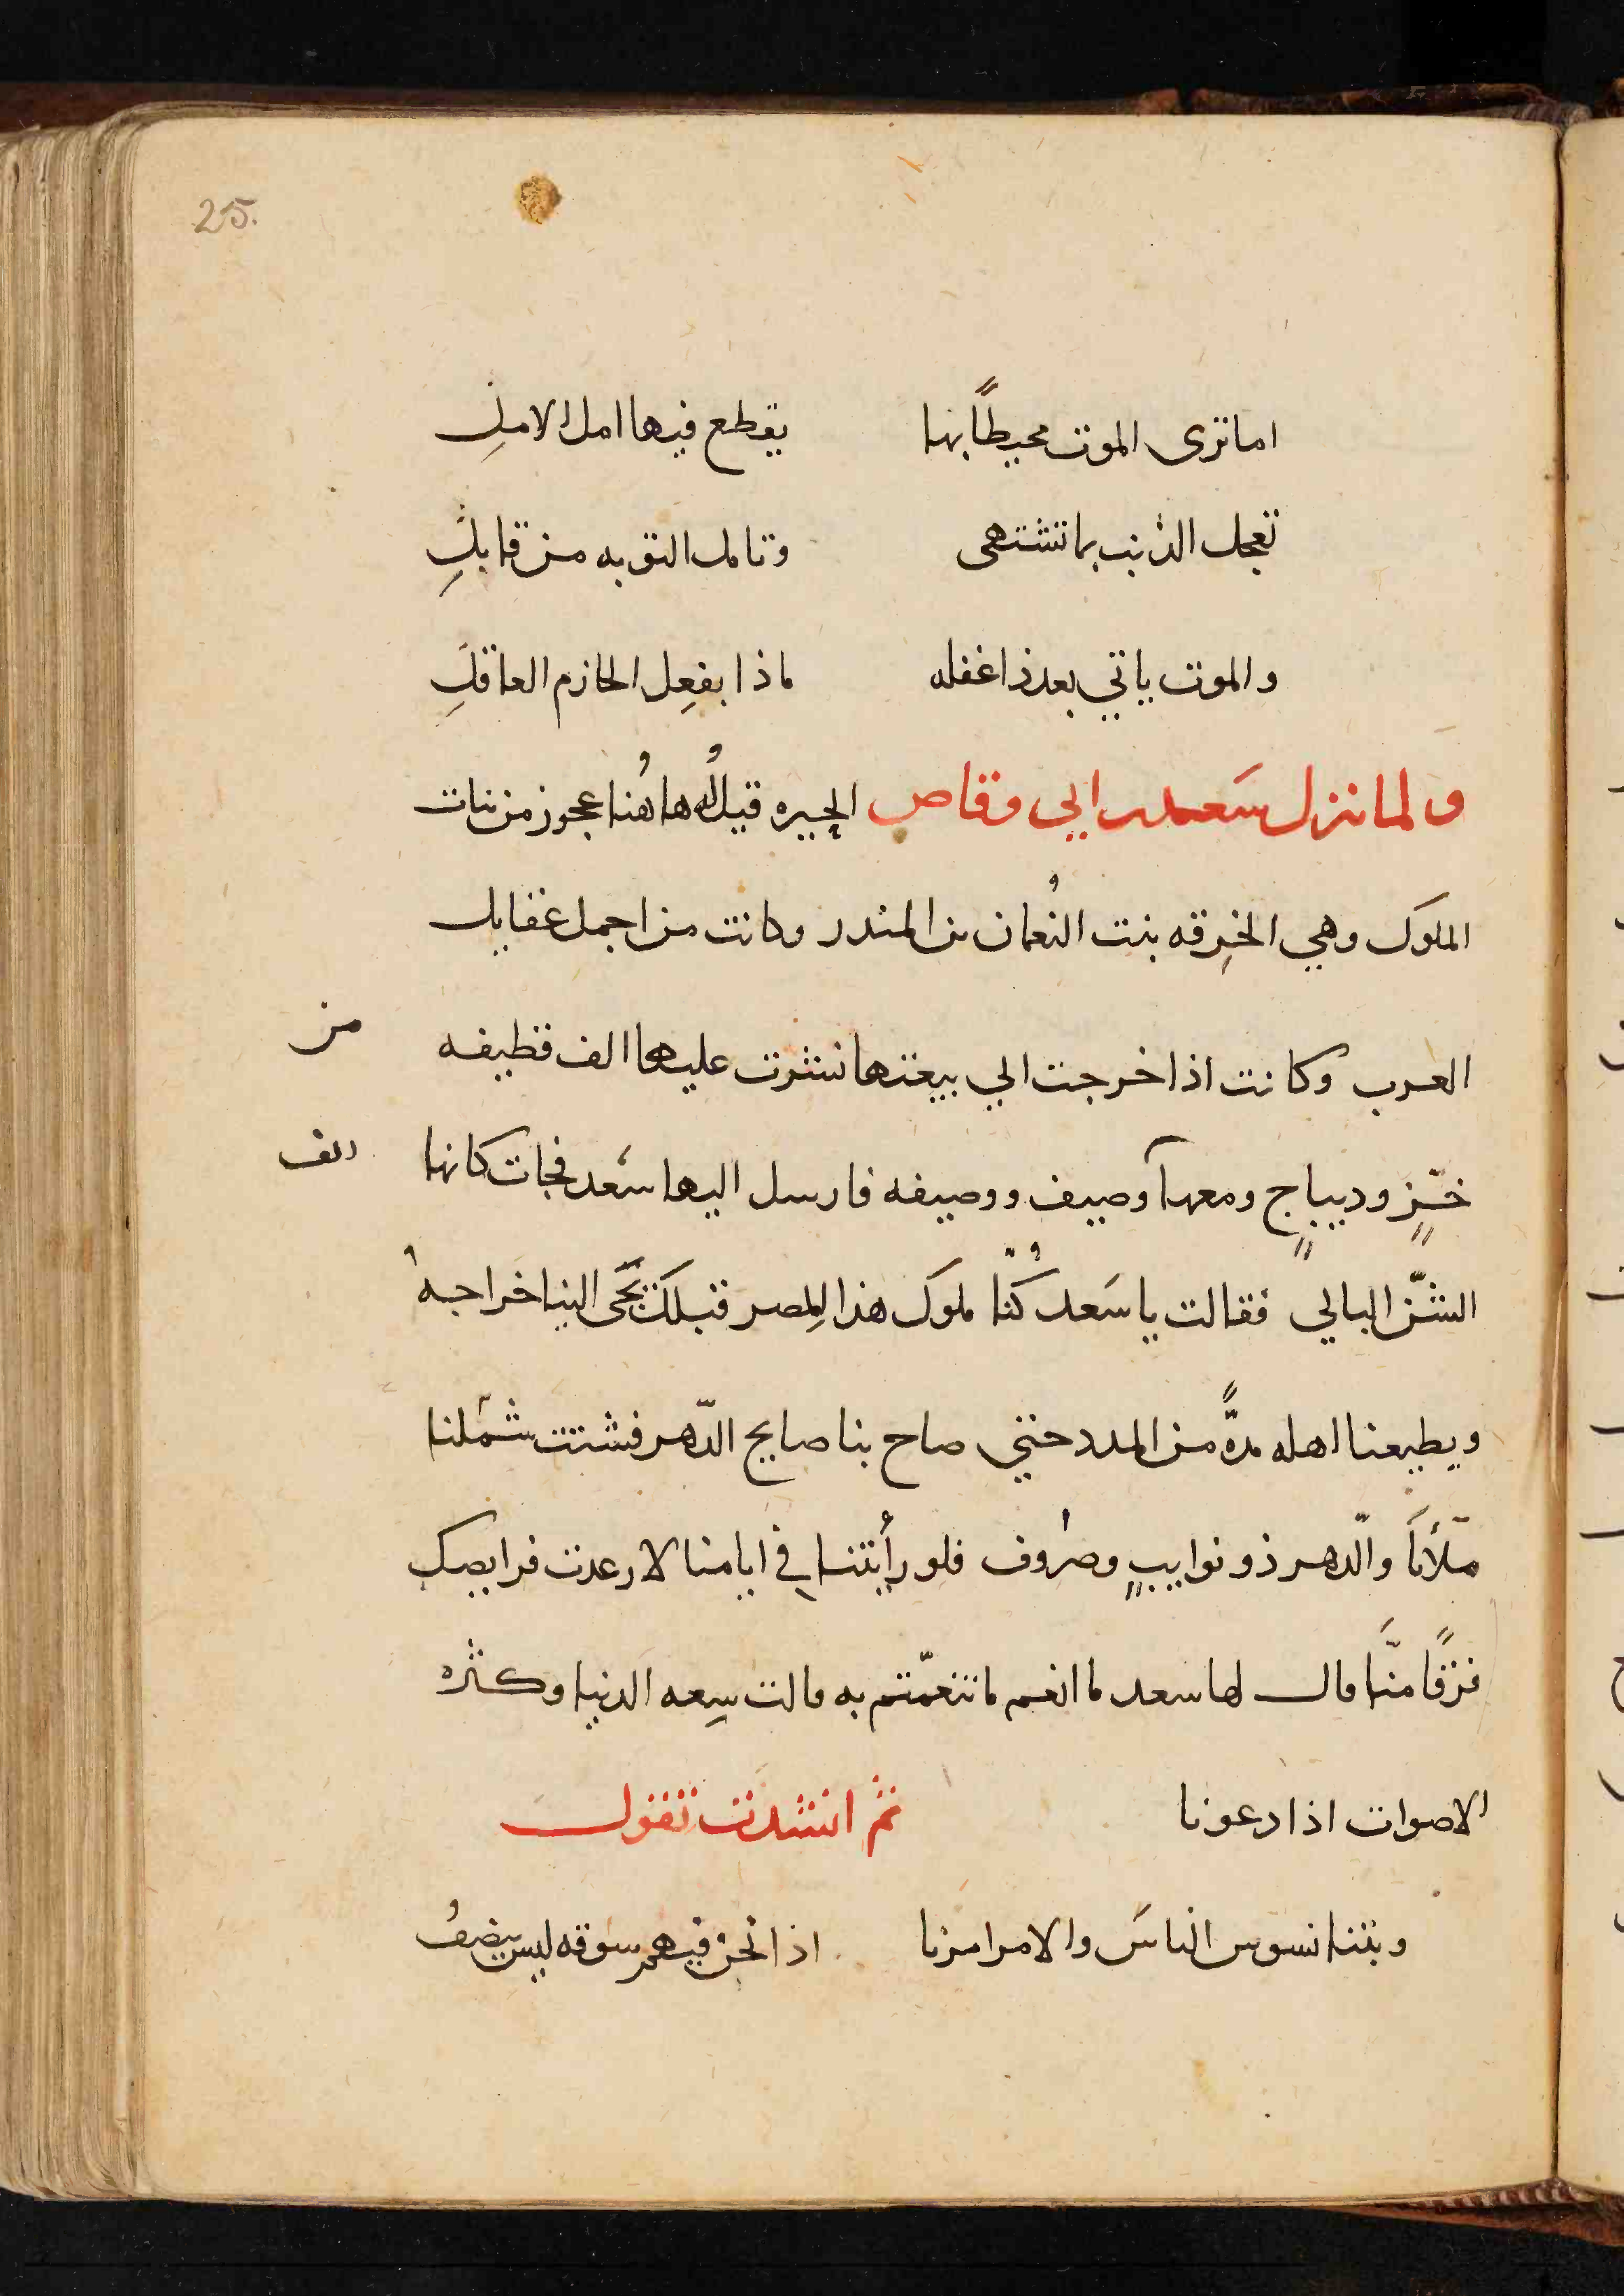 25.
اما ترى الموت محيطًا بها يقطع فيها امل الاملِ
تعجل الذنب بما تشتهى وتامل التوبه من قابلِ
والموت ياتي بعد ذا غفله ماذا بفعِل الحازم العاقلِ
ولما نزل سَعد بن ابي وقاص الحِيره قيل لُه هاهُنا عجوز من بنات
الملوك وهي الخرِقه بنت النُعمان بن المندر وكانت من اجمل عقايل
العرب وكانت اذا خرجت الي بيعتها نشرت عليها الف قطيفه من
خزٍّ وديباجٍ ومعها آ وصيف ووصيفه فارسل اليها سَعد فجات كانها الف
الشنّ البالي فقالت يا سَعد كُنّا ملوكَ هذا المِصر قبلكَ يَجَى الينا خراجهُ
ويطيعنا اهله مدهً من المدد حتي صاح بنا صايح الدّهر فشتت شَملنا
مَلأنا والدّهر ذو نوايبٍ وصرُوف فلو رأيتنا في ايامنا لارعدت فرايصك
فرَقًا منَّا قال لها سعد ما انعم ما تنعمّتم به قالت سِعه الدنيا وكثره
الاصوات اذا دعونا ثم انشدت تقول
وبتنا نسوس الناسَ والامر امرنا اذا نَحن فيهم سوقه ليس ينصفُ